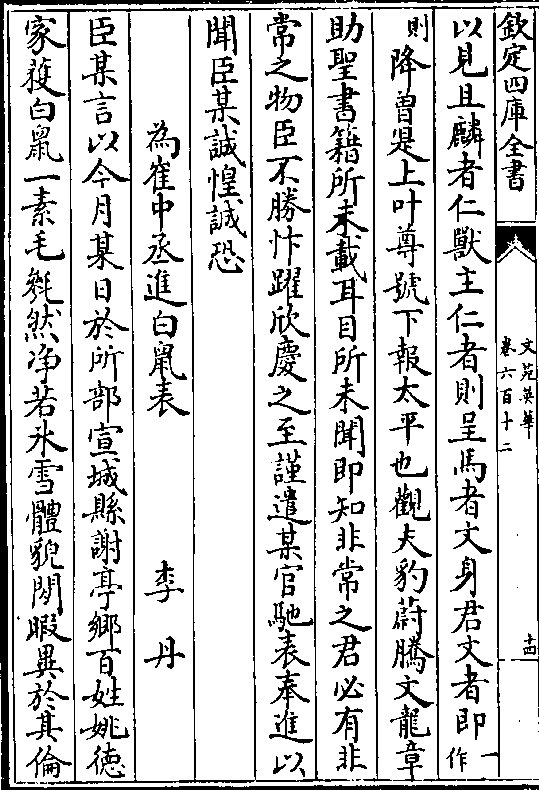 欽定四庫全書
文苑英華
卷六百十二
十四
以見且麟者仁獸主仁者則呈馬者文身君文者即一作
則降曽是上叶尊號下報太平也觀夫豹蔚騰文龍章
助聖書籍所未載耳目所未聞即知非常之君必有非
常之物臣不勝忭躍欣慶之至謹遣某官馳表奉進以
聞臣某誠惶誠恐
為崔中丞進白鼠表
李丹
臣某言以今月某日於所部宣城縣謝亭鄉百姓姚徳
家獲白鼠一素毛毿然净若氷雪體貌閑暇異於其倫